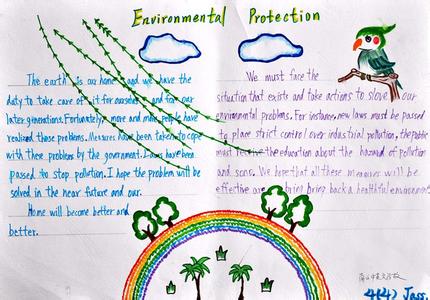 Environmental Protection
The earth is our home and we have the
duty to take care of it for ourselves and for our
later generations. Fortunately, more and more people have
realized those problems. Measures have been taken to cope
with these problems by the government. Laws have been
passed to stop pollution. I hope the problem will be
solved in the near future and our
Home will become better and
better.
We must face the
situation that exists and take actions to slove our
environmental problems. For instance, new laws must be passed
to place strict control over industrial pollution, the public
must receive the education about the hazard of pollution
and so on. We hope that all these measures will be
effective and bring back a healthful environment